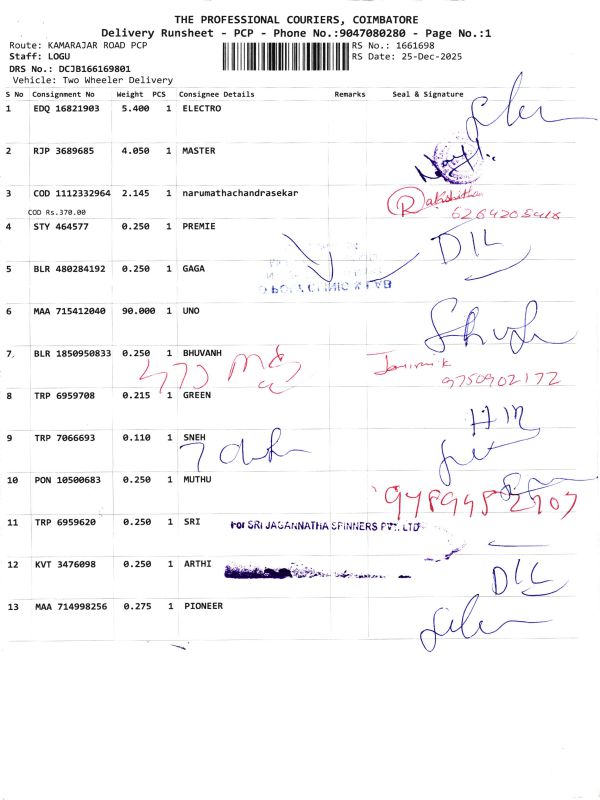 THE PROFESSIONAL COURIERS, COIMBATORE
Delivery Runsheet - PCP - Phone No.:9047080280 - Page No.:1
Route: KAMARAJAR ROAD PCP RS No.: 1661698
Staff: LOGU RS Date: 25-Dec-2025
DRS No.: DCJB166169801
Vehicle: Two Wheeler Delivery
S No Consignment No Weight PCS Consignee Details Remarks Seal & Signature
1 EDQ 16821903 5.400 1 ELECTRO
2 RJP 3689685 4.050 1 MASTER
3 COD 1112332964 2.145 1 narumathachandrasekar
COD Rs.370.00
6264205418
4 STY 464577 0.250 1 PREMIE
DIL
5 BLR 480284192 0.250 1 GAGA
6 MAA 715412040 90.000 1 UNO
7 BLR 1850950833 0.250 1 BHUVANH
9750902172
8 TRP 6959708 0.215 1 GREEN
9 TRP 7066693 0.110 1 SNEH
10 PON 10500683 0.250 1 MUTHU
11 TRP 6959620 0.250 1 SRI
For SRI JAGANNATHA SPINNERS PVT. LTD
12 KVT 3476098 0.250 1 ARTHI
DIL
13 MAA 714998256 0.275 1 PIONEER